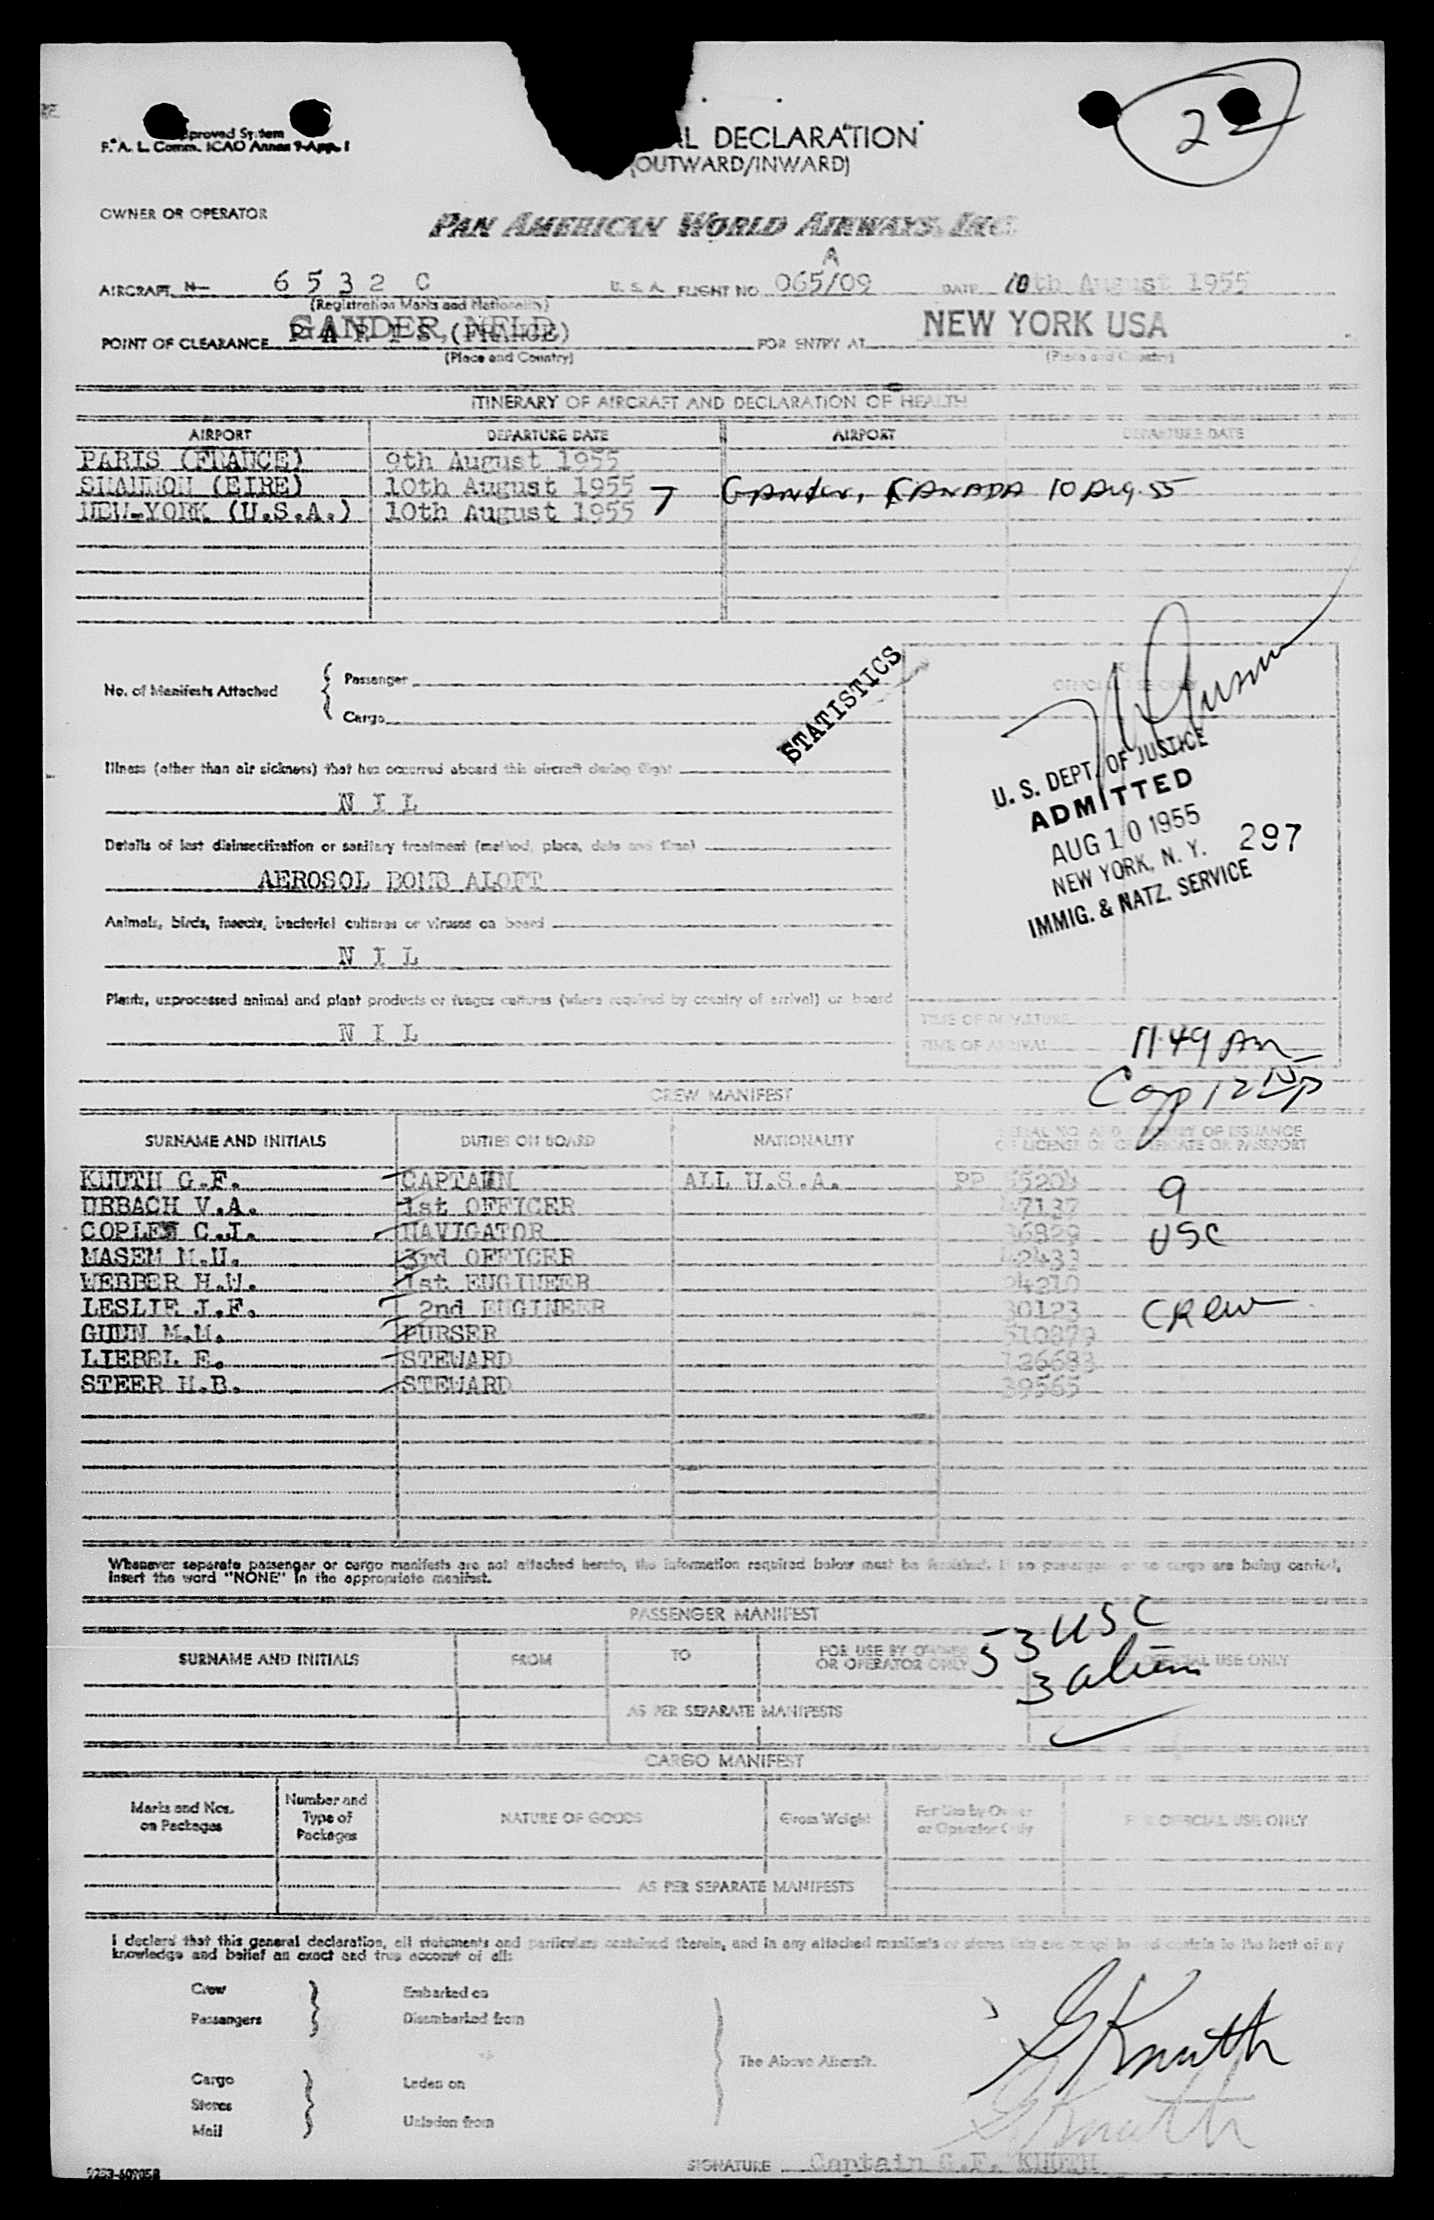 2
proved System
F. A. L. Comm. ICAO Annex 9-App. 1
AL DECLARATION
(OUTWARD/INWARD)
OWNER OR OPERATOR
PAN AMERICAN WORLD AIRWAYS, INC.
AIRCRAFT N- 6532 C U. S. A. FLIGHT NO 065/09 A DATE 10th August 1955
(Registration Marks and Nationality)
POINT OF CLEARANCE GANDER, NFLD PARIS, (FRANCE) FOR ENTRY AT NEW YORK USA
(Place and Country) (Place and Country)
ITINERARY OF AIRCRAFT AND DECLARATION OF HEALTH
AIRPORT DEPARTURE DATE AIRPORT DEPARTURE DATE
PARIS (FRANCE) 9th August 1955
SHANNON (EIRE) 10th August 1955 Gander, CANADA 10 Aug. 55
NEW-YORK (U.S.A.) 10th August 1955
No. of Manifests Attached
Passenger
Cargo
STATISTICS
OFFICIAL USE ONLY
Illness (other than air sickness) that has occurred aboard this aircraft during flight
N I L
Details of last disinsectization or sanitary treatment (method, place, date and time)
AEROSOL BOMB ALOFT
Animals, birds, insects, bacterial cultures or viruses on board
N I L
Plants, unprocessed animal and plant products or fungus cultures (where required by country of arrival) on board
N I L
U. S. DEPT. OF JUSTICE
ADMITTED
AUG 10 1955
NEW YORK, N. Y. 297
IMMIG. & NATZ. SERVICE
TIME OF DEPARTURE
TIME OF ARRIVAL 11:49 Am
CREW MANIFEST
SURNAME AND INITIALS DUTIES ON BOARD NATIONALITY SERIAL NO. AND COUNTRY OF ISSUANCE
OF LICENSE OR CERTIFICATE OR PASSPORT
KNUTH G.F. CAPTAIN ALL U.S.A. PP
URBACH V.A. 1st OFFICER
COPLEN C.J. NAVIGATOR
MASEM M.H. 3rd OFFICER
WEBBER H.W. 1st ENGINEER
LESLIE J.F. 2nd ENGINEER 30123
GUNN M.M. PURSER 510879
LIEBEL E. STEWARD 126683
STEER H.B. STEWARD 39565
9
USC
CREW
Whenever separate passenger or cargo manifests are not attached hereto, the information required below must be furnished. If no passengers or no cargo are being carried,
insert the word "NONE" in the appropriate manifest.
PASSENGER MANIFEST
SURNAME AND INITIALS FROM TO FOR USE BY OWNER
OR OPERATOR ONLY OFFICIAL USE ONLY
53 USC
3 alien
AS PER SEPARATE MANIFESTS
CARGO MANIFEST
Marks and Nos.
on Packages
Number and
Type of
Packages
NATURE OF GOODS
Gross Weight
For Use by Owner
or Operator Only
FOR OFFICIAL USE ONLY
AS PER SEPARATE MANIFESTS
I declare that this general declaration, all statements and particulars contained therein, and in any attached manifests or stores lists are complete and contain to the best of my
knowledge and belief an exact and true account of all:
Crew Embarked on
Passengers Disembarked from
The Above Aircraft.
Cargo Laden on
Stores
Mail Unladen from
G Knuth
G Knuth
SIGNATURE Captain G.F. KNUTH